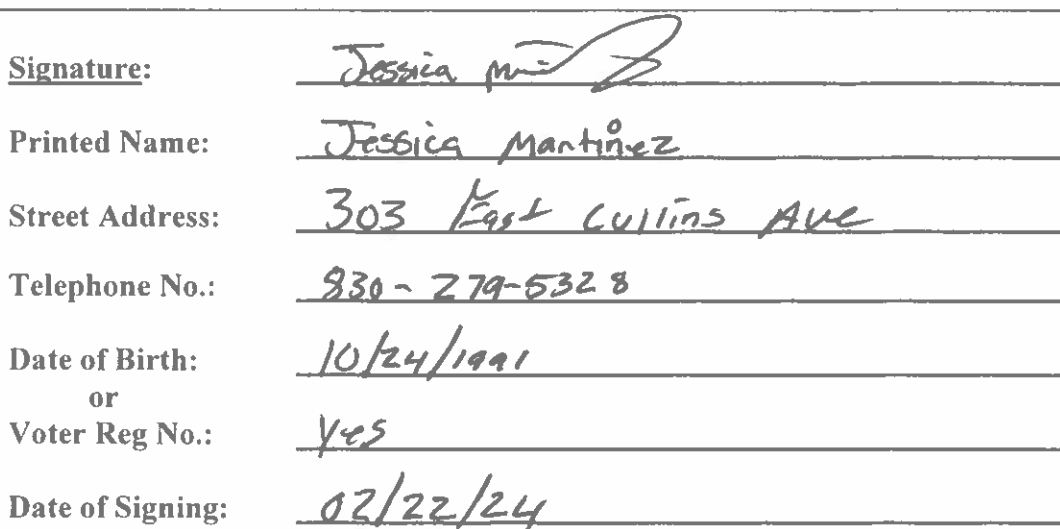 Signature: Jessica
Printed Name: Jessica Martinez
Street Address: 303 East Cullins Ave
Telephone No.: 830-279-5328
Date of Birth: 10/24/1991
or
Voter Reg No.: yes
Date of Signing: 02/22/24